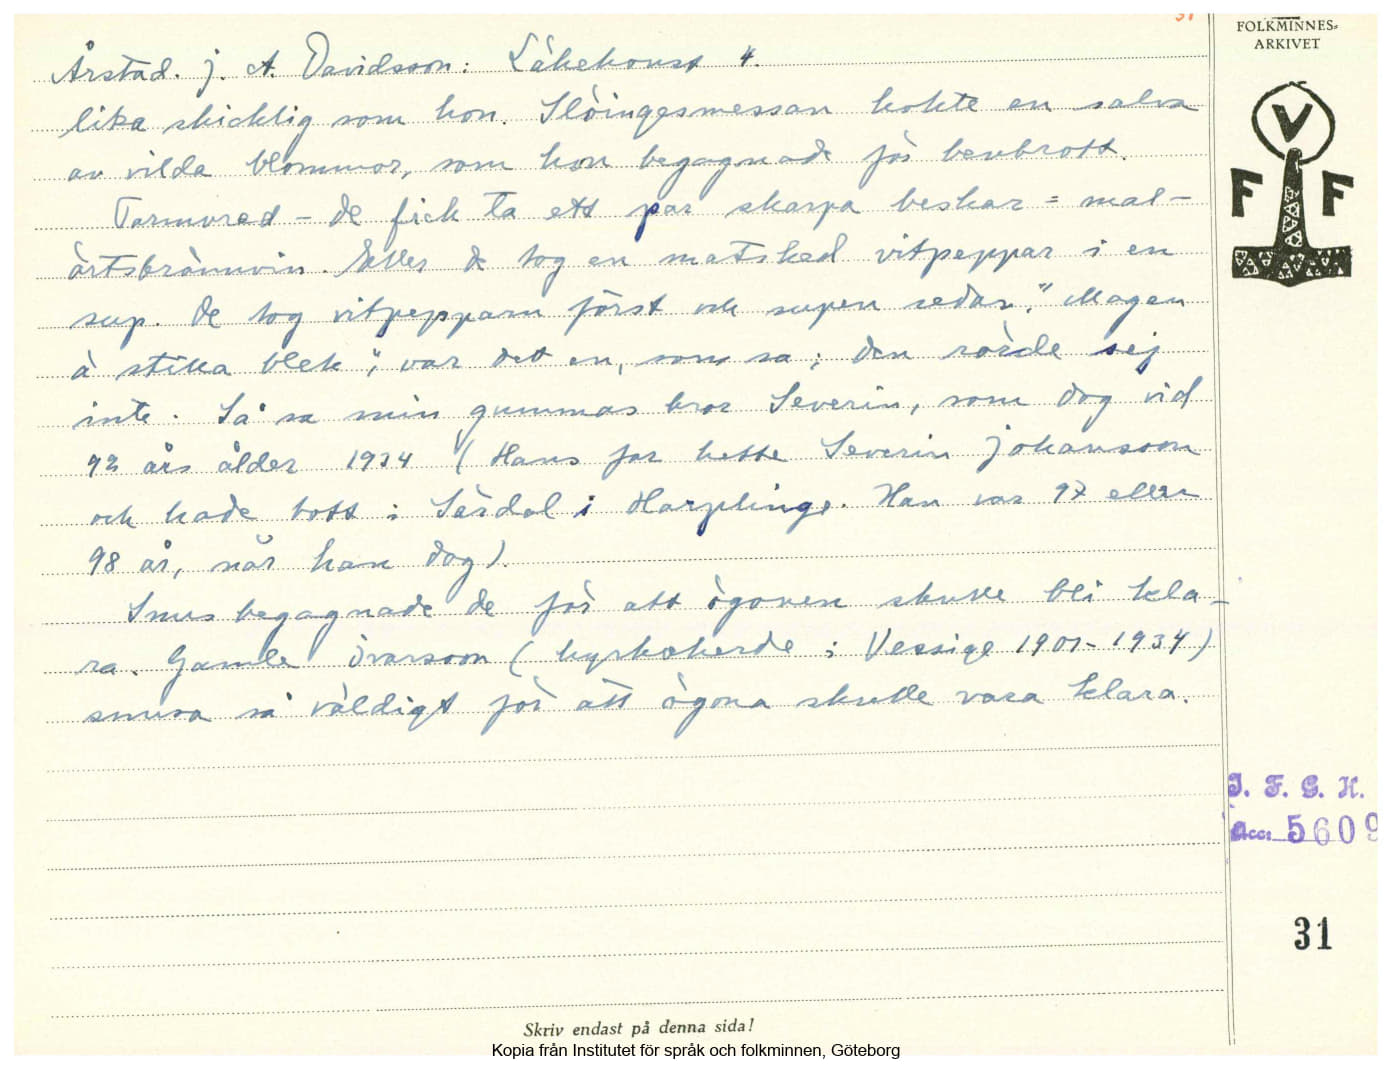 31
FOLKMINNES-
ARKIVET
V
F F
Årstad. J. A. Davidsson: Läkekonst 4.
lika skicklig som hon. Slöingesmessan kokte en salva
av vilda blommor, som hon begagnade för benbrott.
Tarmvred - de fick ta ett par skarpa beskar = mal-
örtsbrännvin. Eller de tog en matsked vitpeppar i en
sup. De tog vitpepparn först och supen sedan. "Magen
ä stika blek", var det en, som sa; den rörde sej
inte. Så sa min gummas bror Severin, som dog vid
92 års ålder 1934 (Hans far hette Severin Johansson
och hade bott i Särdal i Harplinge. Han var 97 eller
98 år, när han dog).
Snus begagnade de för att ögonen skulle bli kla-
ra. Gamle Ivarsson (kyrkoherde i Vessige 1901-1934)
snusa så väldigt för att ögona skulle vara klara.
I. F. G. H.
Acc: 5609
31
Skriv endast på denna sida!
Kopia från Institutet för språk och folkminnen, Göteborg